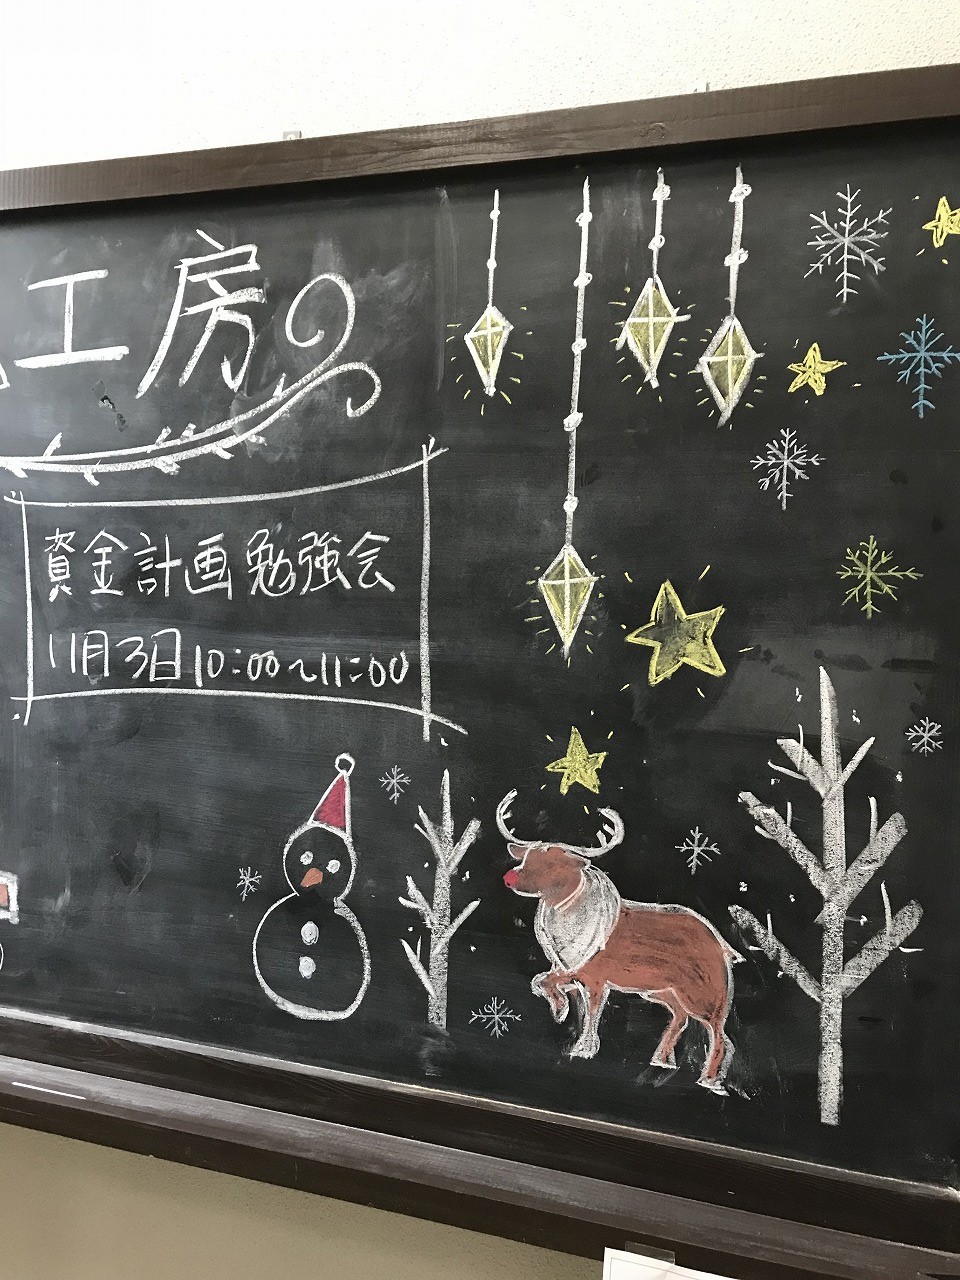 工房
資金計画勉強会
11月3日10:00~11:00